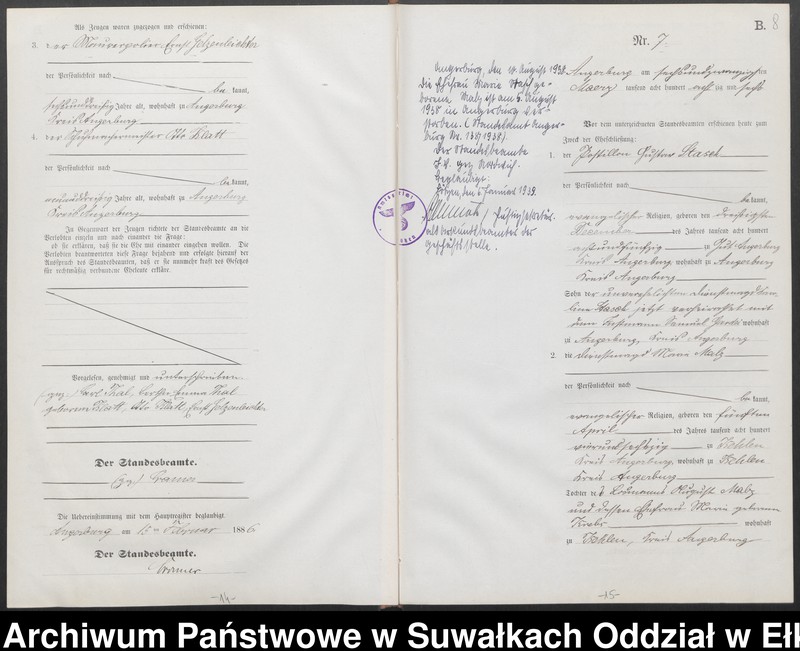 Als Zeugen waren zugezogen und erschienen:
3. der Maurerpolier Ernst
der Persönlichkeit nach
be kannt,
Jahre alt, wohnhaft zu Angerburg
Kreis Angerburg
4. der Otto Klatt
der Persönlichkeit nach
be kannt,
Jahre alt, wohnhaft zu Angerburg
Kreis Angerburg
In Gegenwart der Zeugen richtete der Standesbeamte an die
Verlobten einzeln und nach einander die Frage:
ob sie erklären, daß sie die Ehe mit einander eingehen wollen. Die
Verlobten beantworteten diese Frage bejahend und erfolgte hierauf der
Ausspruch des Standesbeamten, daß er sie nunmehr kraft des Gesetzes
für rechtmäßig verbundene Eheleute erkläre.
Vorgelesen, genehmigt und unterschrieben
(gez.) Carl Thal, Emma Thal
geborene Klatt, Otto Klatt, Ernst
Der Standesbeamte.
(gez.) Cramer
Die Uebereinstimmung mit dem Hauptregister beglaubigt
Angerburg am 15ten Februar 1886
Der Standesbeamte.
Cramer
-14-
B. 8
Nr. 7
Angerburg, den August 1938
Die Ehefrau Maria Stasch ge-
borene Malz ist am August
1938 in Angerburg ver-
storben. (Standesamt Anger-
burg Nr. 1938).
Der Standesbeamte
I.V. gez.
Beglaubigt:
Lötzen, den Januar 1939.
Justizsekretär
als Urkundsbeamter der
Geschäftsstelle.
Angerburg am sechsundzwanzigsten
Maerz tausend acht hundert acht zig und sechs
Vor dem unterzeichneten Standesbeamten erschienen heute zum
Zweck der Eheschließung:
1. der Postillon Gustav Stasch
der Persönlichkeit nach
be kannt,
evangelischer Religion, geboren den dreißigsten
des Jahres tausend acht hundert
achtundfünfzig zu Gut Angerburg
Kreis Angerburg wohnhaft zu Angerburg
Kreis Angerburg
Sohn der unverehelichten Dienstmagd
Stasch jetzt verheirathet mit
dem Samuel wohnhaft
zu Angerburg, Kreis Angerburg
2. die Dienstmagd Maria Malz
der Persönlichkeit nach
be kannt,
evangelischer Religion, geboren den fünften
April des Jahres tausend acht hundert
vierundsechszig zu Kehlen
Kreis Angerburg, wohnhaft zu Kehlen
Kreis Angerburg
Tochter des Losmanns August Malz
und dessen Ehefrau Maria geborene
Krebs wohnhaft
zu Kehlen, Kreis Angerburg
-15-
Archiwum Państwowe w Suwałkach Oddział w Ełk